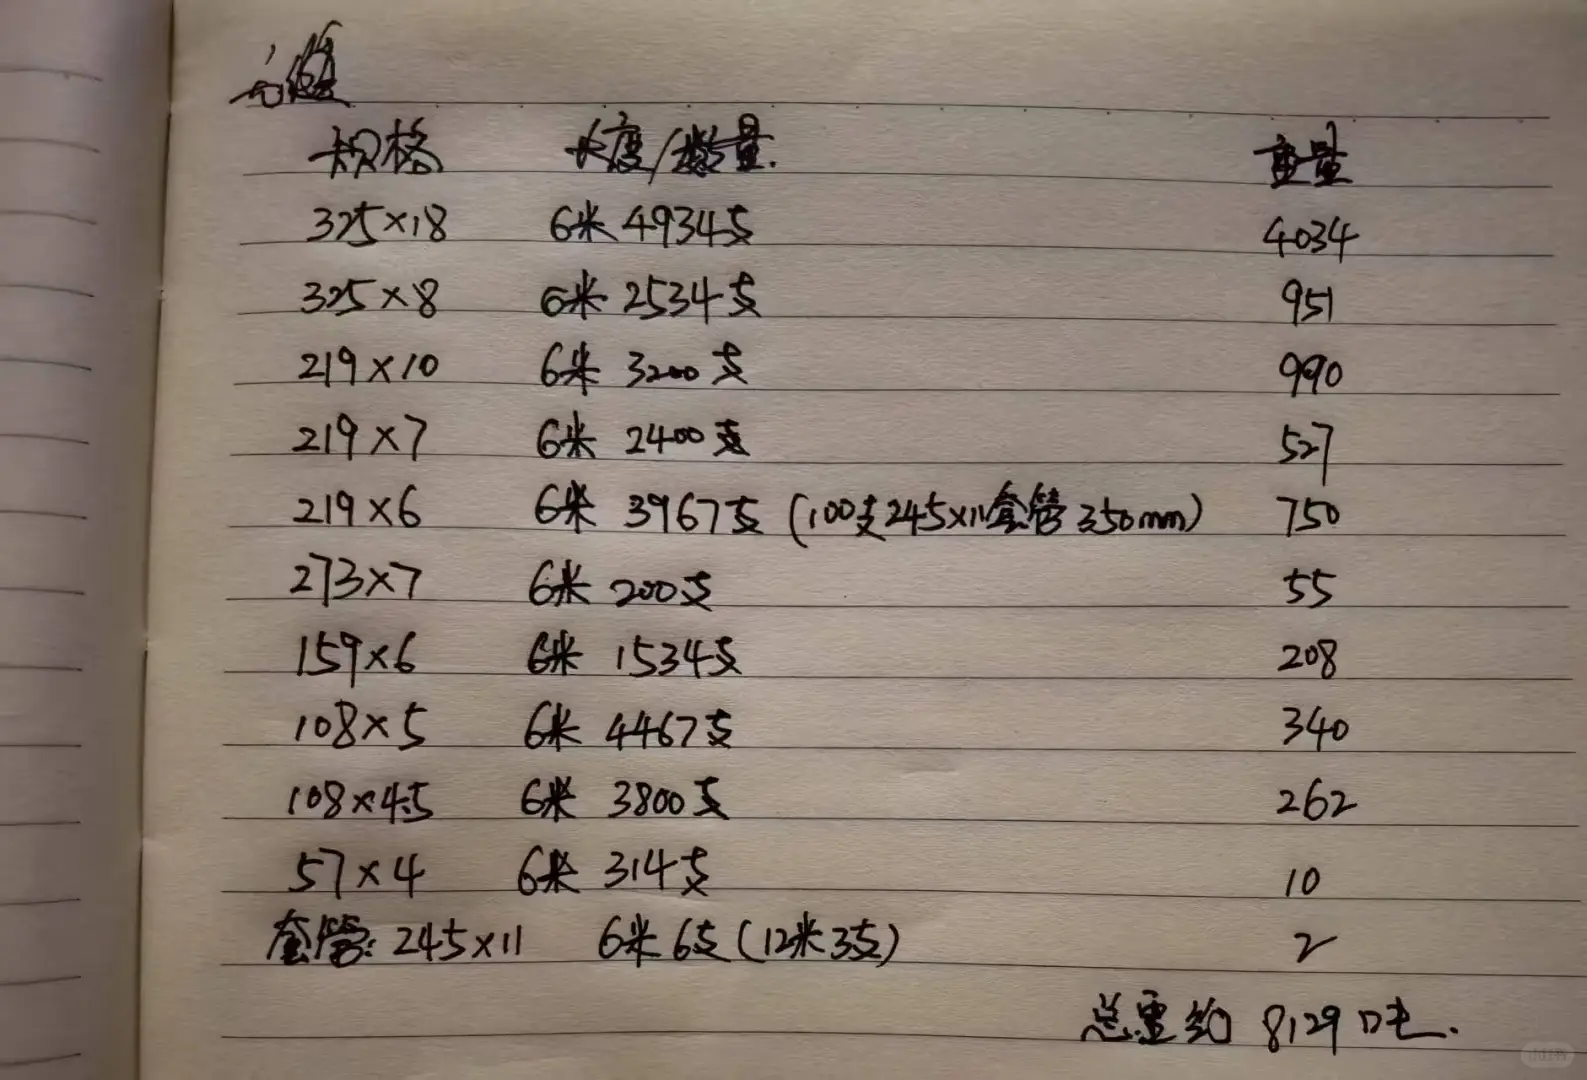 规格 长度/数量. 重量
325×18 6米 4934支 4034
325×8 6米 2534支 951
219×10 6米 3200支 990
219×7 6米 2400支 527
219×6 6米 3967支 (100支245×11套管350mm) 750
273×7 6米 200支 55
159×6 6米 1534支 208
108×5 6米 4467支 340
108×4.5 6米 3800支 262
57×4 6米 314支 10
套管: 245×11 6米 6支 (12米3支) 2
总重约 8129吨.